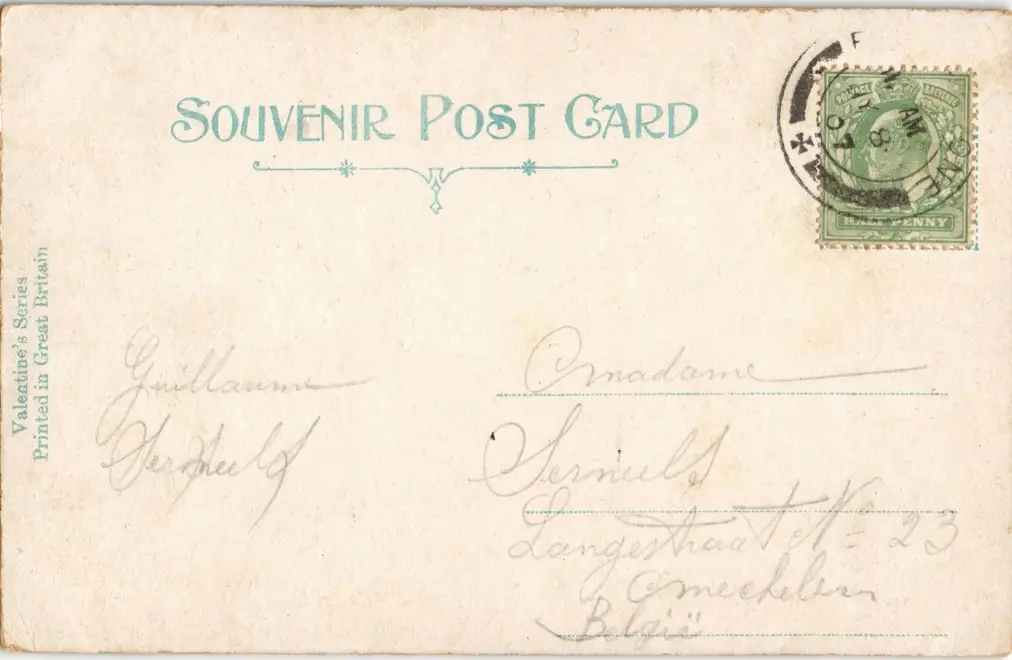 SOUVENIR POST CARD
POSTAGE REVENUE
AM
8
07
HALFPENNY
Valentine's Series
Printed in Great Britain
Guillaume
Serneels
Madame
Serneels
Langestraat No 23
Mechelen
België